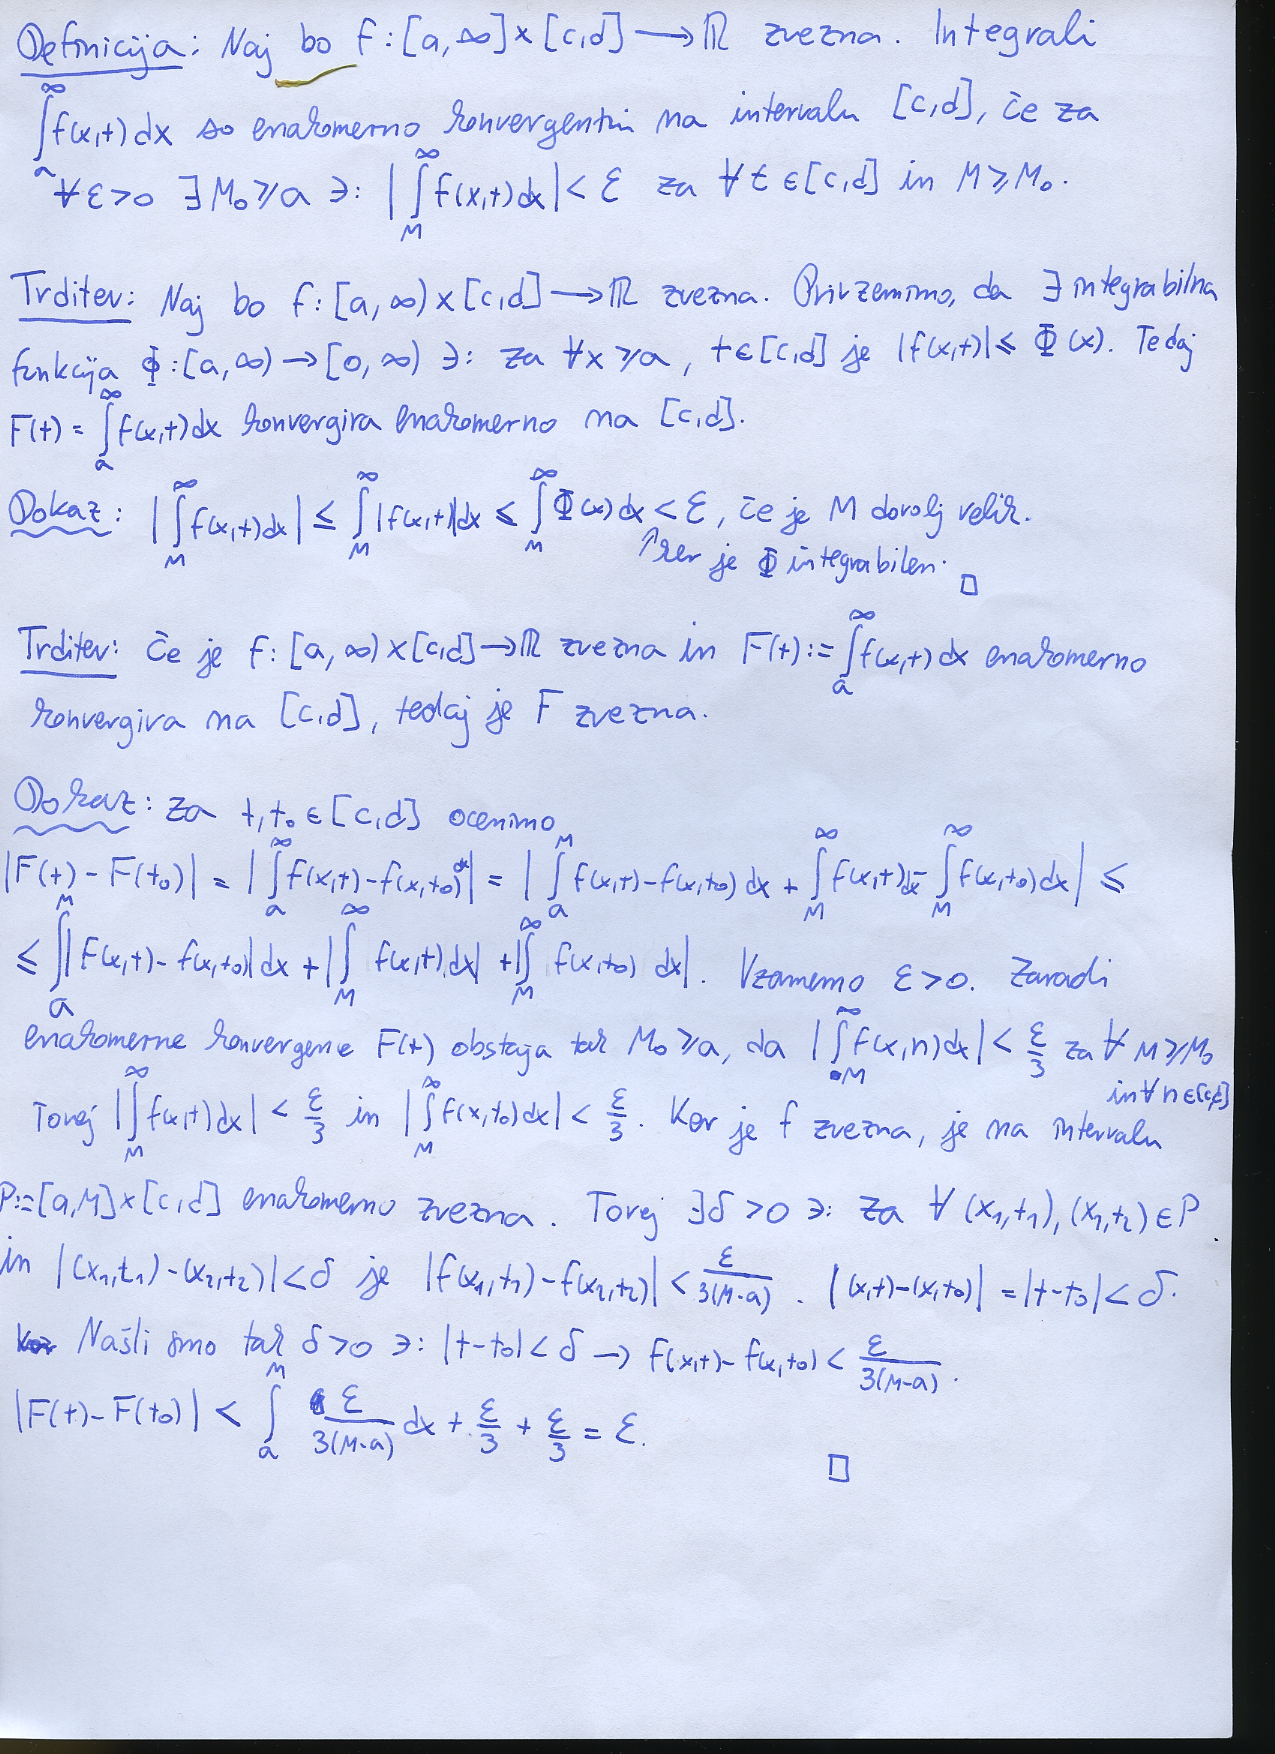 Definicija: Naj bo f: [a, ∞] × [c,d] → ℝ zvezna. Integrali
∫_a^∞ f(x,t) dx so enakomerno konvergentni na intervalu [c,d], če za
∀ε>0 ∃M₀≥a ∋: |∫_M^∞ f(x,t) dx| < ε za ∀t∈[c,d] in M≥M₀.
Trditev: Naj bo f: [a, ∞) × [c,d] → ℝ zvezna. Privzemimo, da ∃ integrabilna
funkcija Φ: [a,∞) → [0,∞) ∋: za ∀x≥a, t∈[c,d] je |f(x,t)| ≤ Φ(x). Tedaj
F(t) = ∫_a^∞ f(x,t) dx konvergira enakomerno na [c,d].
Dokaz: |∫_M^∞ f(x,t) dx| ≤ ∫_M^∞ |f(x,t)| dx ≤ ∫_M^∞ Φ(x) dx < ε, če je M dovolj velik.
↑ ker je Φ integrabilen. □
Trditev: Če je f: [a, ∞) × [c,d] → ℝ zvezna in F(t) := ∫_a^∞ f(x,t) dx enakomerno
konvergira na [c,d], tedaj je F zvezna.
Dokaz: za t,t₀ ∈ [c,d] ocenimo
|F(t) - F(t₀)| = |∫_a^∞ f(x,t) - f(x,t₀) dx| = |∫_a^M f(x,t) - f(x,t₀) dx + ∫_M^∞ f(x,t) dx - ∫_M^∞ f(x,t₀) dx| ≤
≤ ∫_a^M |f(x,t) - f(x,t₀)| dx + |∫_M^∞ f(x,t) dx| + |∫_M^∞ f(x,t₀) dx|. Vzamemo ε>0. Zaradi
enakomerne konvergence F(t) obstaja tak M₀≥a, da |∫_M^∞ f(x,n) dx| < ε/3 za ∀M≥M₀
in ∀n∈[c,d]
Torej |∫_M^∞ f(x,t) dx| < ε/3 in |∫_M^∞ f(x,t₀) dx| < ε/3. Ker je f zvezna, je na intervalu
P:=[a,M]×[c,d] enakomerno zvezna. Torej ∃δ>0 ∋: za ∀(x₁,t₁), (x₁,t₂) ∈ P
in |(x₁,t₁) - (x₂,t₂)| < δ je |f(x₁,t₁) - f(x₂,t₂)| < ε/3(M-a). |(x,t)-(x,t₀)| = |t-t₀| < δ.
Našli smo tak δ>0 ∋: |t-t₀| < δ → f(x,t) - f(x,t₀) < ε/3(M-a).
|F(t) - F(t₀)| < ∫_a^M ε/3(M-a) dx + ε/3 + ε/3 = ε.
□